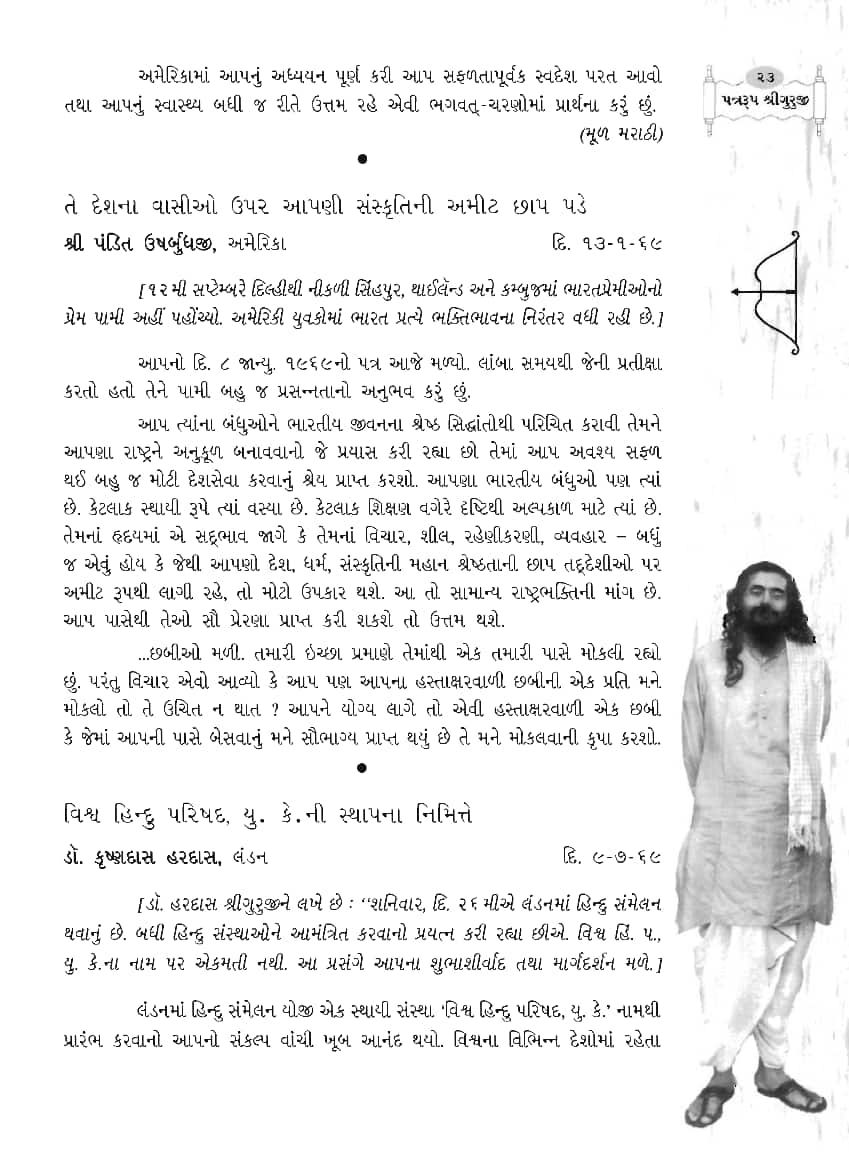 ૨૩
પત્રરૂપ શ્રીગુરુજી
અમેરિકામાં આપનું અધ્યયન પૂર્ણ કરી આપ સફળતાપૂર્વક સ્વદેશ પરત આવો
તથા આપનું સ્વાસ્થ્ય બધી જ રીતે ઉત્તમ રહે એવી ભગવત્-ચરણોમાં પ્રાર્થના કરું છું.
(મૂળ મરાઠી)
●
તે દેશના વાસીઓ ઉપર આપણી સંસ્કૃતિની અમીટ છાપ પડે
શ્રી પંડિત ઉષર્બુધજી, અમેરિકા દિ. ૧૩-૧-૬૯
[૧૨મી સપ્ટેમ્બરે દિલ્હીથી નીકળી સિંહપુર, થાઈલૅન્ડ અને કમ્બુજમાં ભારતપ્રેમીઓનો
પ્રેમ પામી અહીં પહોંચ્યો. અમેરિકી યુવકોમાં ભારત પ્રત્યે ભક્તિભાવના નિરંતર વધી રહી છે.]
આપનો દિ. ૮ જાન્યુ. ૧૯૬૯નો પત્ર આજે મળ્યો. લાંબા સમયથી જેની પ્રતીક્ષા
કરતો હતો તેને પામી બહુ જ પ્રસન્નતાનો અનુભવ કરું છું.
આપ ત્યાંના બંધુઓને ભારતીય જીવનના શ્રેષ્ઠ સિદ્ધાંતોથી પરિચિત કરાવી તેમને
આપણા રાષ્ટ્રને અનુકૂળ બનાવવાનો જે પ્રયાસ કરી રહ્યા છો તેમાં આપ અવશ્ય સફળ
થઈ બહુ જ મોટી દેશસેવા કરવાનું શ્રેય પ્રાપ્ત કરશો. આપણા ભારતીય બંધુઓ પણ ત્યાં
છે. કેટલાક સ્થાયી રૂપે ત્યાં વસ્યા છે. કેટલાક શિક્ષણ વગેરે દૃષ્ટિથી અલ્પકાળ માટે ત્યાં છે.
તેમનાં હૃદયમાં એ સદ્ભાવ જાગે કે તેમનાં વિચાર, શીલ, રહેણીકરણી, વ્યવહાર – બધું
જ એવું હોય કે જેથી આપણો દેશ, ધર્મ, સંસ્કૃતિની મહાન શ્રેષ્ઠતાની છાપ તદ્દેશીઓ પર
અમીટ રૂપથી લાગી રહે, તો મોટો ઉપકાર થશે. આ તો સામાન્ય રાષ્ટ્રભક્તિની માંગ છે.
આપ પાસેથી તેઓ સૌ પ્રેરણા પ્રાપ્ત કરી શકશે તો ઉત્તમ થશે.
...છબીઓ મળી. તમારી ઇચ્છા પ્રમાણે તેમાંથી એક તમારી પાસે મોકલી રહ્યો
છું. પરંતુ વિચાર એવો આવ્યો કે આપ પણ આપના હસ્તાક્ષરવાળી છબીની એક પ્રતિ મને
મોકલો તો તે ઉચિત ન થાત ? આપને યોગ્ય લાગે તો એવી હસ્તાક્ષરવાળી એક છબી
કે જેમાં આપની પાસે બેસવાનું મને સૌભાગ્ય પ્રાપ્ત થયું છે તે મને મોકલવાની કૃપા કરશો.
●
વિશ્વ હિન્દુ પરિષદ, યુ. કે.ની સ્થાપના નિમિત્તે
ડૉ. કૃષ્ણદાસ હરદાસ, લંડન દિ. ૯-૭-૬૯
[ડૉ. હરદાસ શ્રીગુરુજીને લખે છે : ‘‘શનિવાર, દિ. ૨૬મીએ લંડનમાં હિન્દુ સંમેલન
થવાનું છે. બધી હિન્દુ સંસ્થાઓને આમંત્રિત કરવાનો પ્રયત્ન કરી રહ્યા છીએ. વિશ્વ હિં. પ.,
યુ. કે.ના નામ પર એકમતી નથી. આ પ્રસંગે આપના શુભાશીર્વાદ તથા માર્ગદર્શન મળે.]
લંડનમાં હિન્દુ સંમેલન યોજી એક સ્થાયી સંસ્થા ‘વિશ્વ હિન્દુ પરિષદ, યુ. કે.’ નામથી
પ્રારંભ કરવાનો આપનો સંકલ્પ વાંચી ખૂબ આનંદ થયો. વિશ્વના વિભિન્ન દેશોમાં રહેતા